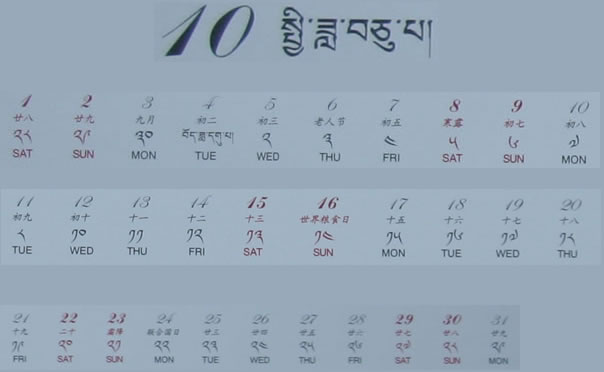 10 སྤྱི་ཟླ་བཅུ་པ།
1 2 3 4 5 6 7 8 9 10
廿八 廿九 九月 初二 初三 老人节 初五 寒露 初七 初八
༢༨ ༢༩ ༣༠ བོད་ཟླ་དགུ་པ། ༢ ༣ ༤ ༥ ༦ ༧
SAT SUN MON TUE WED THU FRI SAT SUN MON
11 12 13 14 15 16 17 18 19 20
初九 初十 十一 十二 十三 世界粮食日 十五 十六 十七 十八
༨ ༡༠ ༡༡ ༡༢ ༡༣ ༡༤ ༡༥ ༡༦ ༡༧ ༡༨
TUE WED THU FRI SAT SUN MON TUE WED THU
21 22 23 24 25 26 27 28 29 30 31
十九 二十 霜降 联合国日 廿三 廿四 廿五 廿六 廿七 廿八 廿九
༡༩ ༢༠ ༢༡ ༢༢ ༢༣ ༢༤ ༢༥ ༢༦ ༢༧ ༢༨ ༢༩
FRI SAT SUN MON TUE WED THU FRI SAT SUN MON